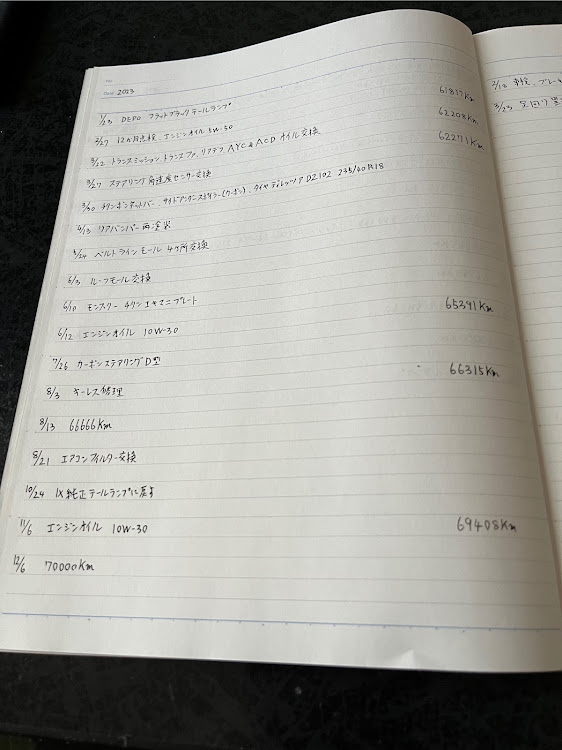 Date 2023
1/23 DEPO フラットブラックテールランプ 61817Km
2/27 12ヵ月点検、エンジンオイル 5W-50 62208Km
3/22 トランスミッション、トランスファ、リアデフ、AYC&ACDオイル交換 62271Km
3/27 ステアリング角速度センサー交換
3/30 チタンボンネットバー、サイド (カーボン)、タイヤ ディレッツァ DZ102 235/40R18
4/13 リアバンパー再塗装
5/24 ベルトラインモール 4ヶ所交換
6/3 ルーフモール交換
6/10 モンスター チタンエキマニプレート
6/12 エンジンオイル 10W-30 65391Km
7/26 カーボンステアリングD型
8/3 キーレス修理 66315Km
8/13 66666Km
8/21 エアコンフィルター交換
10/24 IX純正テールランプに戻す
11/6 エンジンオイル 10W-30 69408Km
12/6 70000Km
2/12 車検、ブレーキ
3/23